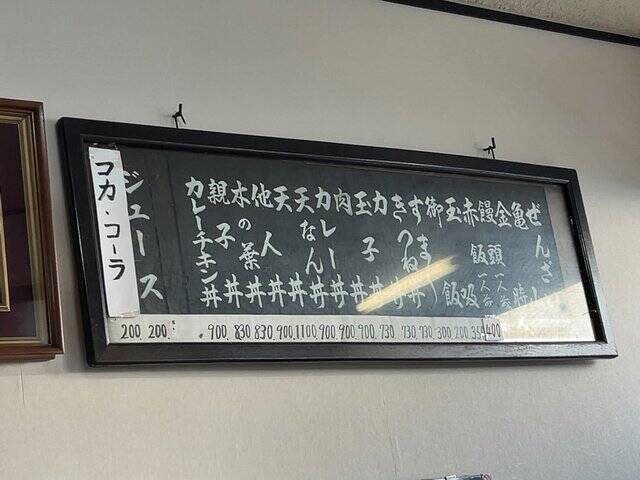 ぜんざい
赤飯
玉吸
御飯
すまし
きつね丼
玉子丼
肉丼
カレー丼
天丼
他人丼
木の葉丼
親子丼
カレーチキン丼
ジュース
コカ・コーラ
200 200 900 830 830 900 1100 900 900 900 730 730 730 300 200 350 400